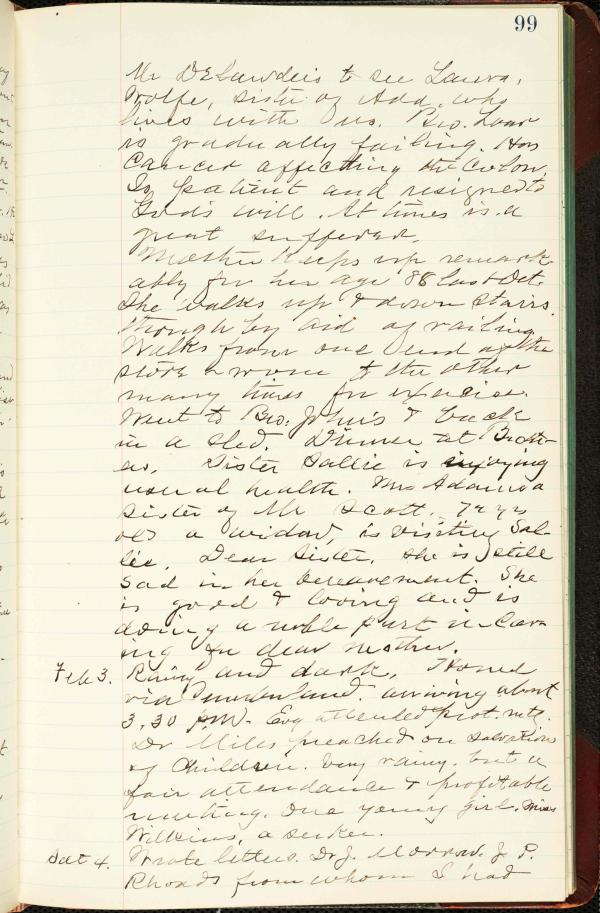 99
Mr DeLawders to see Laura,
Wolfe, sister of Add. who
lives with us. Bro. 
is gradually failing. Has
Cancer affecting the Colon.
Is patient and resigned to
God's will. At times is a
great sufferer.
Mother keeps up remark-
ably for her age 88 last Oct.
She walks up & down stairs
though by aid of railing
Walks from one end of the
store room to the other
many times for exercise.
Went to Bro. John's & back
in a sled. Dinner at Broth-
ers. Sister Sallie is enjoying
usual health. Mrs Adams a
sister of Mr Scott, 74 yrs
old a widow, is visiting Sal-
lie. Dear Sister. she is still
sad in her bereavement. She
is good & loving and is
doing a noble part in car-
ing for dear mother.
Feb 3. Rainy and dark. Home
via Cumberland. arriving about
3.30 P.M. Evg attended prot. mtg.
Dr Miles preached on Salvation
of Children. Very rainy. but a
fair attendance & profitable
meeting. One young girl. Miss
Wilkins, a seeker.
Sat 4. Wrote letters. Dr J. Morrow. J. P.
Rhoads from whom I had